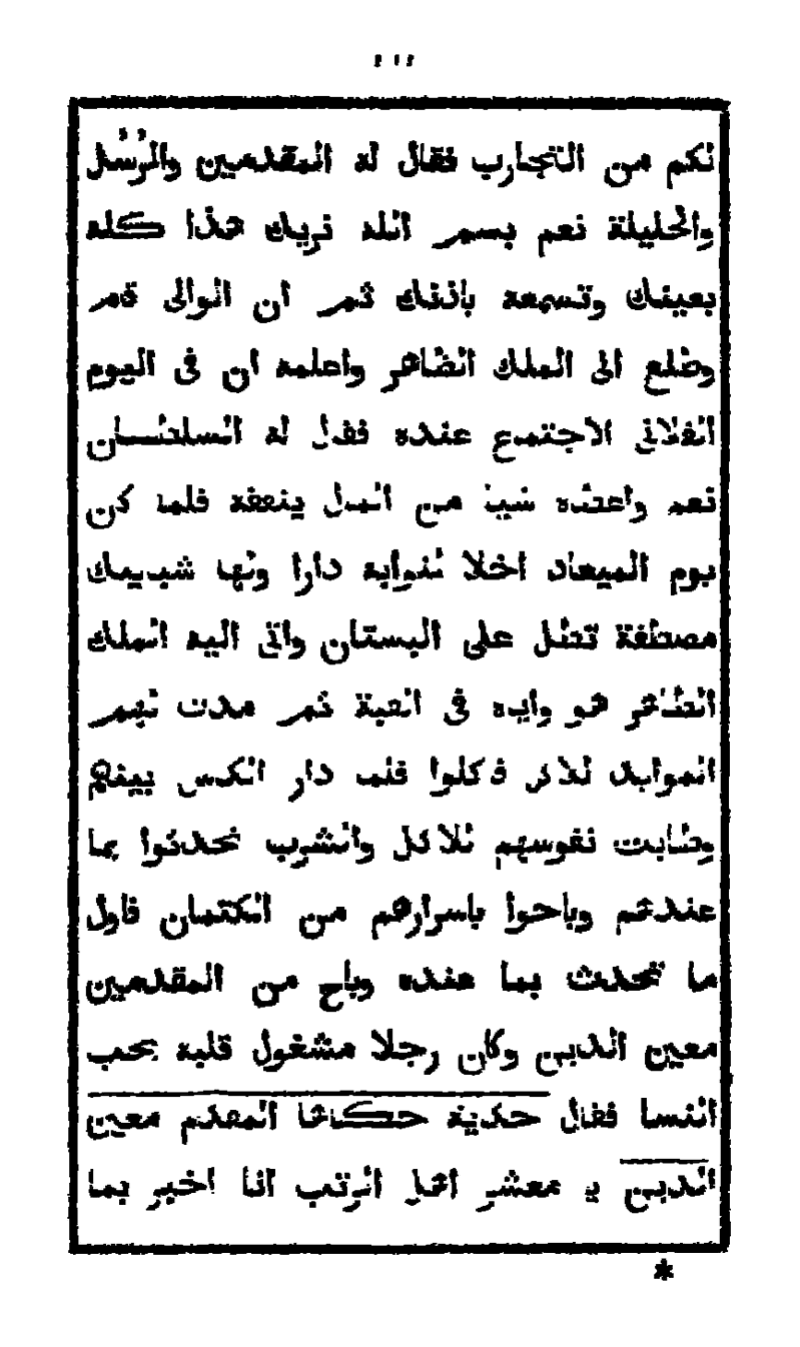 لكم من التجارب فقال له المقدمين والرُسُل
والحليلة نعم بسمر الله نريك هذا كله
بعينك وتسمعه باذنك ثمر ان الوالى قمر
وطلع الى الملك الظاهر واعلمه ان فى اليوم
الفلانى الاجتمع عنده فقال له السلطـان
نعم واعطه شيا من المال ينفقه فلما كن
يوم الميعاد اخلا لنوابه دارا ولها شبيبك
مصطفة تطل على البستان واتى اليه الملك
الظاهر هو وايه فى القبة ثمر مدت لهمر
الموايد للاكل فاكلوا فلما دار الكس بينهم
وطابت نفوسهم للاكل والشرب تحدثوا بما
عندهم وباحوا باسرارهم من الكتمان فاول
ما تحدث بما عنده وباح من المقدمين
معين الدين وكان رجلا مشغول قلبه بحب
النسا فقال حكاية حكاها المقدم معين
الدين يا معشر اهل الرتب انا اخبر بما
*